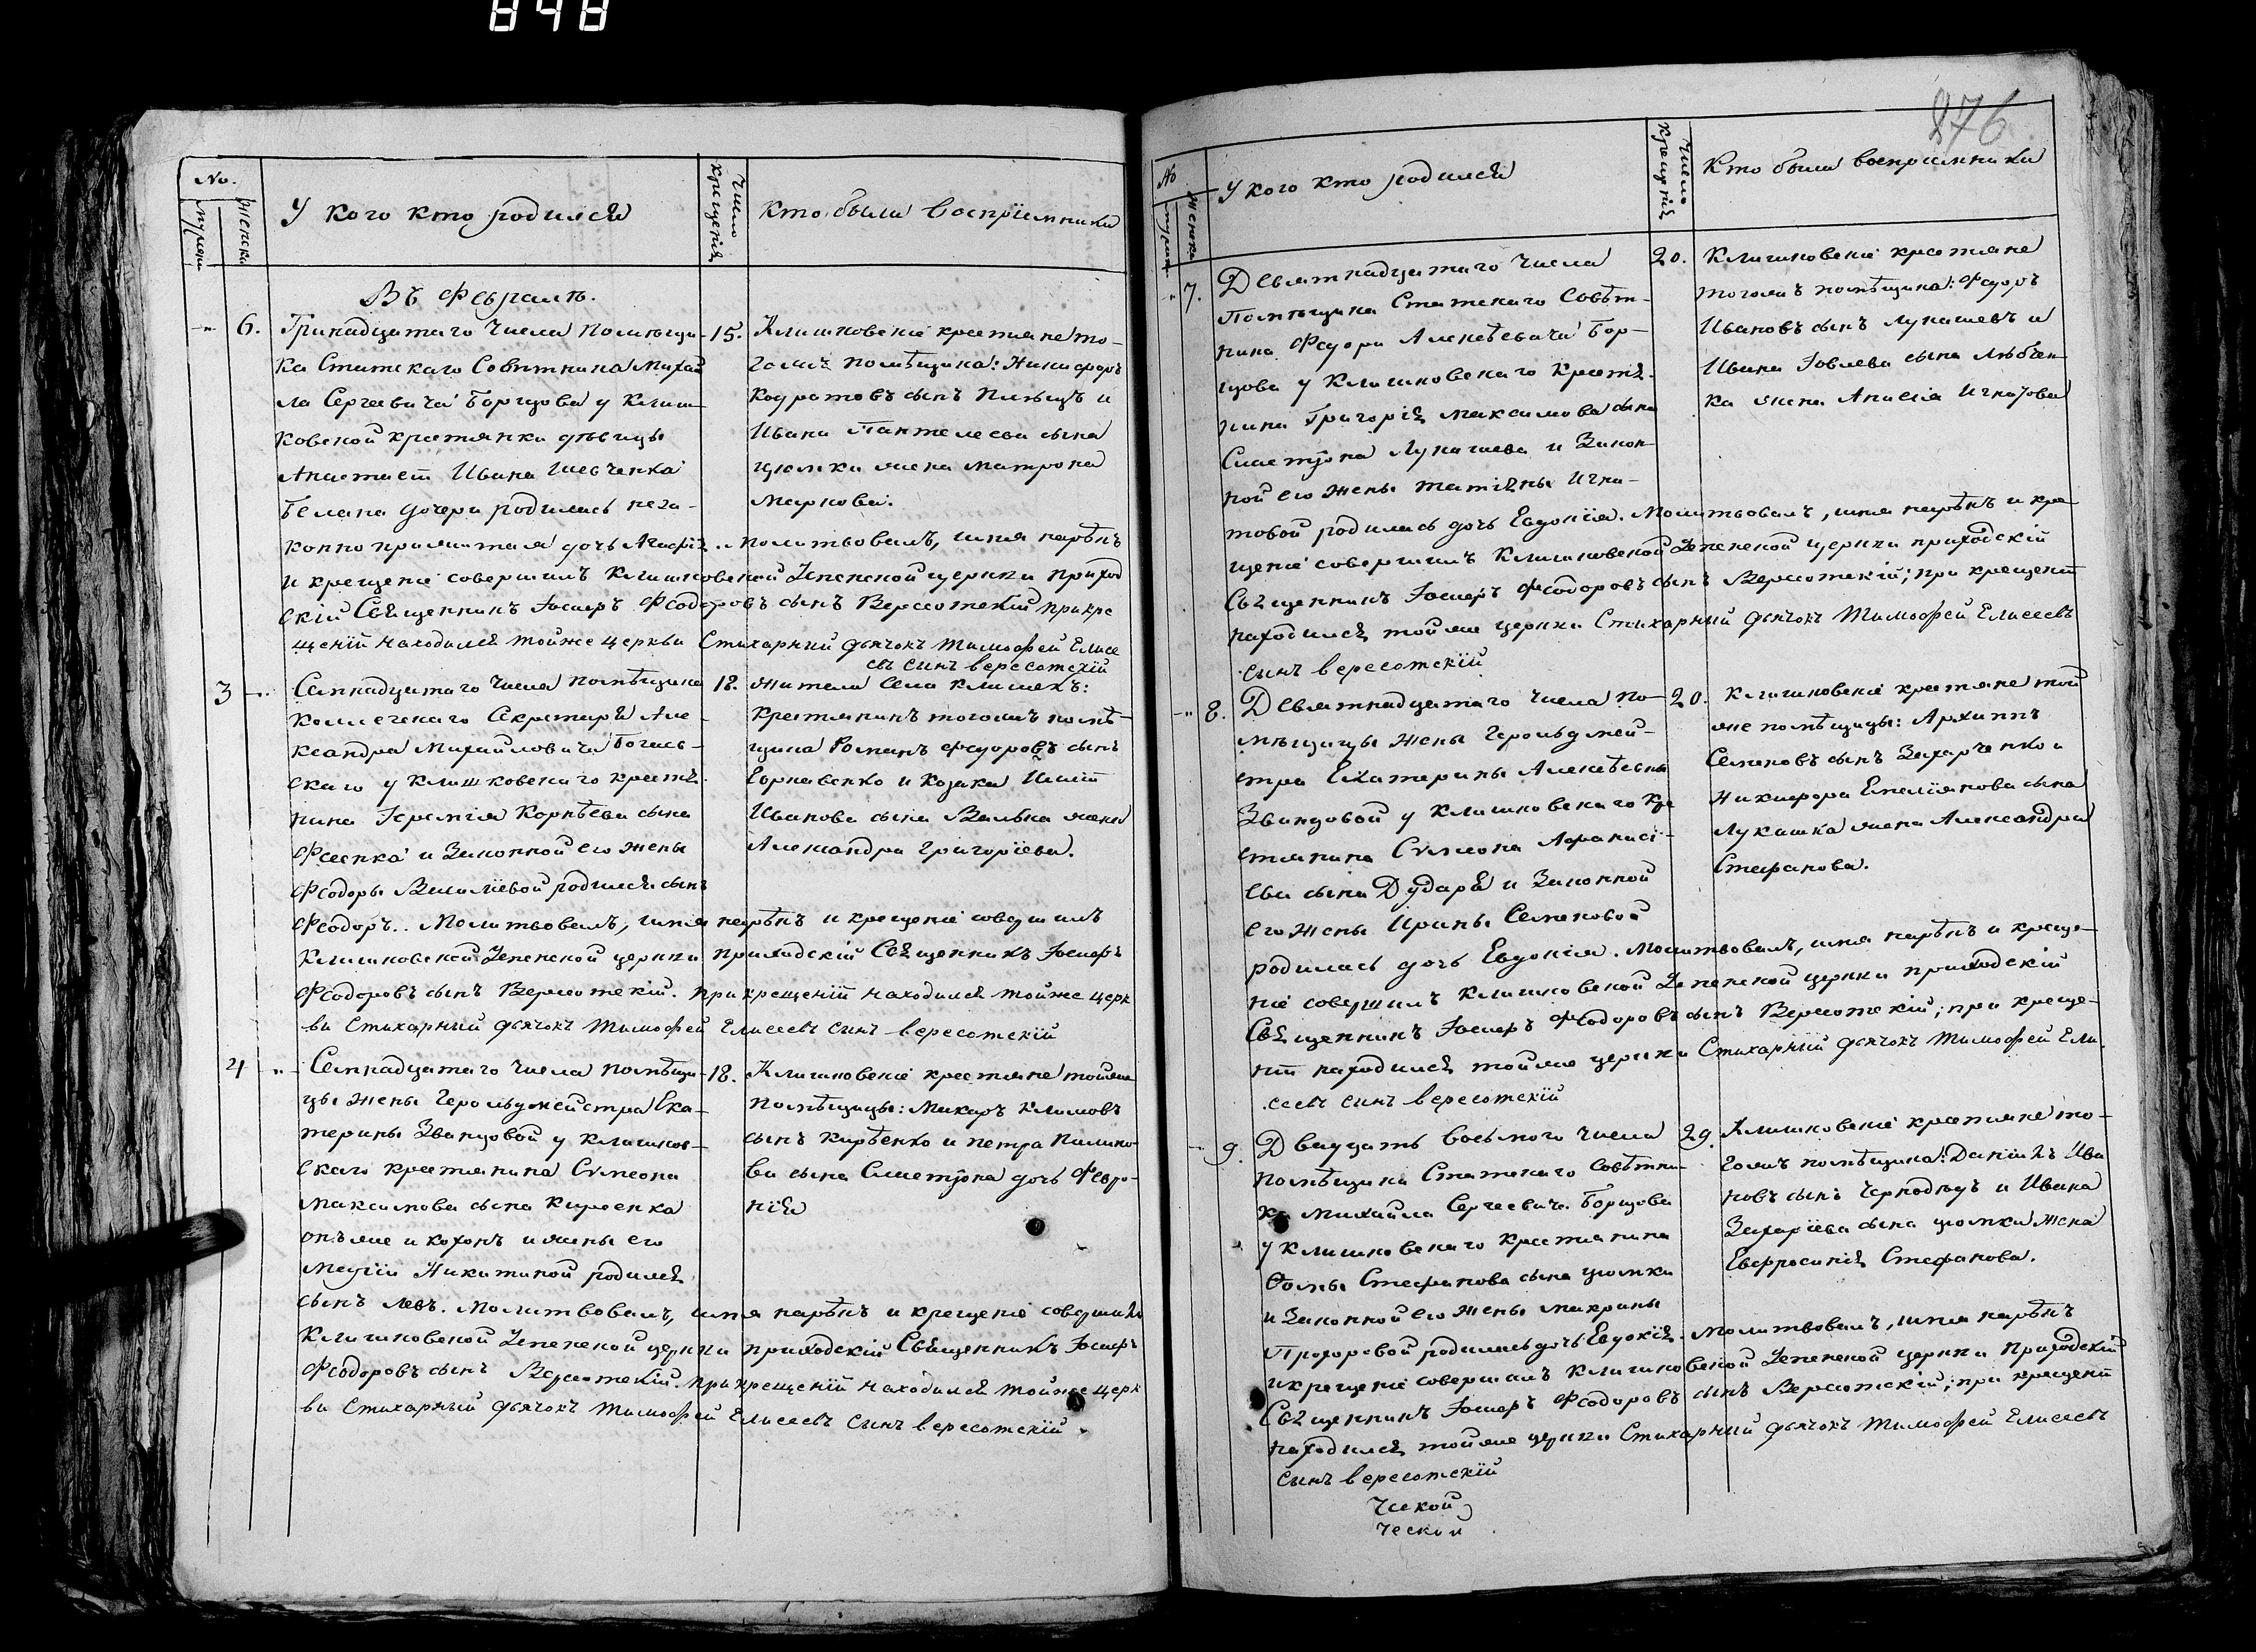 848
No.
мужеска
Женска
У кого кто родился
Число крещенія
Кто были воспріемники
Въ Февралѣ.
6. Тринадцатаго числа помѣщи-
ка Статскаго Совѣтника Михай
ла Сергеевича Борщова у Клиш-
ковской крестянки дѣвицы
Анастасіи Ивана Шевченка
Белана дочери родилась неза-
конно прижитая дочь Агафія. Молитвовалъ, имя нарѣкъ
и крещеніе совершилъ Клишковской Успенской церкви приход
скій Священникъ Іосифъ Феодоровъ сынъ Вересотскій при кре
щеніи находился тойже церкви Стихарный дьячокъ Тимофей Елисе
евъ синъ Вересотскій
15. Клишковскіе крестяне то-
гожъ помѣщика: Никифоръ
Кодратовъ сынъ и
Ивана Пантелеева сына
Цюмки жена Матрона
Маркова.
3 Семнадцатаго числа помѣщика
Коллегскаго Секретаря Але-
ксандра Михайловича Богаев-
скаго у Клишковскаго крестя-
нина Іеремія Корнѣева сына
Фесенка и Законной его жены
Феодоры Василіевой родился сынъ
Феодоръ.. Молитвовалъ, имя нарѣкъ и крещеніе совершилъ
Клишковской Успенской церкви приходскій Священникъ Іосифъ
Феодоровъ сынъ Вересотскій. при крещеніи находился тойже церк
ви Стихарный дьячокъ Тимофей Елисеевъ синъ Вересотскій
18. Жители села Клишекъ:
крестянинъ тогожъ помѣ-
щика Романъ Федоровъ сынъ
и козака
Иванова сына жена
Александра Григоріева.
4 Семнадцатаго числа помѣщи-
цы жены Герольдмейстра Ека-
терины Званцовой у Клишков-
скаго крестянина Симеона
Максимова сына Кирѣенка
онъже и Кохонъ и жены его
Маріи Никитиной родился
сынъ Левъ. Молитвовалъ, имя нарѣкъ и крещеніе совершилъ
Клишковской Успенской церкви приходскій Священникъ Іосифъ
Феодоровъ сынъ Вересотскій. при крещеніи находился тойже церк
ви Стихарный дьячокъ Тимофей Елисеевъ синъ Вересотскій
18. Клишковскіе крестяне тойже
помѣщицы: Макаръ Климовъ
сынъ Кирѣенко и Петра
ва сына Сластіона дочь Февро-
нія
876
No
мужеска
Женска
У кого кто родился
Число крещенія
Кто были воспріемники
7. Девятнадцатаго числа
Помѣщика Статскаго Совѣт-
ника Федора Алексѣевича Бор-
щова у Клишковскаго крестя-
нина Григорія Максимова сына
Сластіона Лукашева и Закон-
ной его жены Татіяны Игна-
товой родилась дочь Евдокія. Молитвовалъ, имя нарѣкъ и кре-
щеніе совершилъ Клишковской Успенской церкви приходскій
Священникъ Іосифъ Феодоровъ сынъ Вересотскій; при крещеніи
находился тойже церкви Стихарный дьячокъ Тимофей Елисеевъ
синъ Вересотскій
20. Клишковскіе крестяне
тогожъ помѣщика: Федоръ
Ивановъ сынъ Лукашевъ и
Ивана Іовлева сына
ка жена Анисія Игнатова
8. Девятнадцатаго числа по-
мѣщицы жены Герольдмей-
стра Екатерины Алексѣевны
Званцовой у Клишковскаго кре
стянина Симеона Афанасі-
ева сына Дударя и Законной
его жены Ирины Семеновой
родилась дочь Евдокія. Молитвовалъ, имя нарѣкъ и креще-
ніе совершилъ Клишковской Успенской церкви приходскій
Священникъ Іосифъ Феодоровъ сынъ Вересотскій; при креще-
ніи находился тойже церкви Стихарный дьячокъ Тимофей Ели-
сеевъ синъ Вересотскій
20. Клишковскіе крестяне той
же помѣщицы: Архиппъ
Семеновъ сынъ Захарченко и
Никифора Емеліянова сына
Лукашка жена Александра
Стефанова.
9. Двадцать восьмого числа
Помѣщика Статскаго Совѣтни-
ка Михайла Сергеевича Борщова
у Клишковскаго крестянина
Ѳомы Стефанова сына Цюмки
и Законной его жены Макрины
Прохоровой родилась дочь Евдокія. Молитвовалъ, имя нарѣкъ
и крещеніе совершилъ Клишковской Успенской церкви Приходскій
Священникъ Іосифъ Феодоровъ сынъ Вересотскій; при крещеніи
находился тойже церкви Стихарный дьячокъ Тимофей Елисеевъ
синъ Вересотскій
29. Клишковскіе крестяне то-
гожъ помѣщика: Даніилъ Ива
новъ сынъ и Ивана
Захаріева сына Цюмки жена
Евфросинія Стефанова.